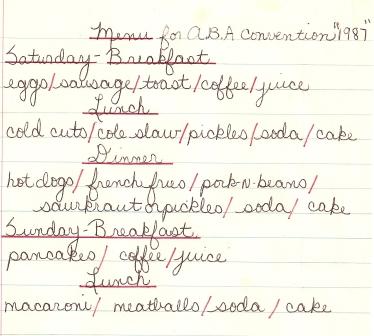 Menu for A.B.A convention "1987"
Saturday-Breakfast
eggs/sausage/toast/coffee/juice
Lunch
cold cuts/cole slaw/pickles/soda/cake
Dinner
hot dogs/french fries/pork-n-beans/
saurkraut or pickles/soda/cake
Sunday-Breakfast
pancakes/coffee/juice
Lunch
macaroni/meatballs/soda/cake